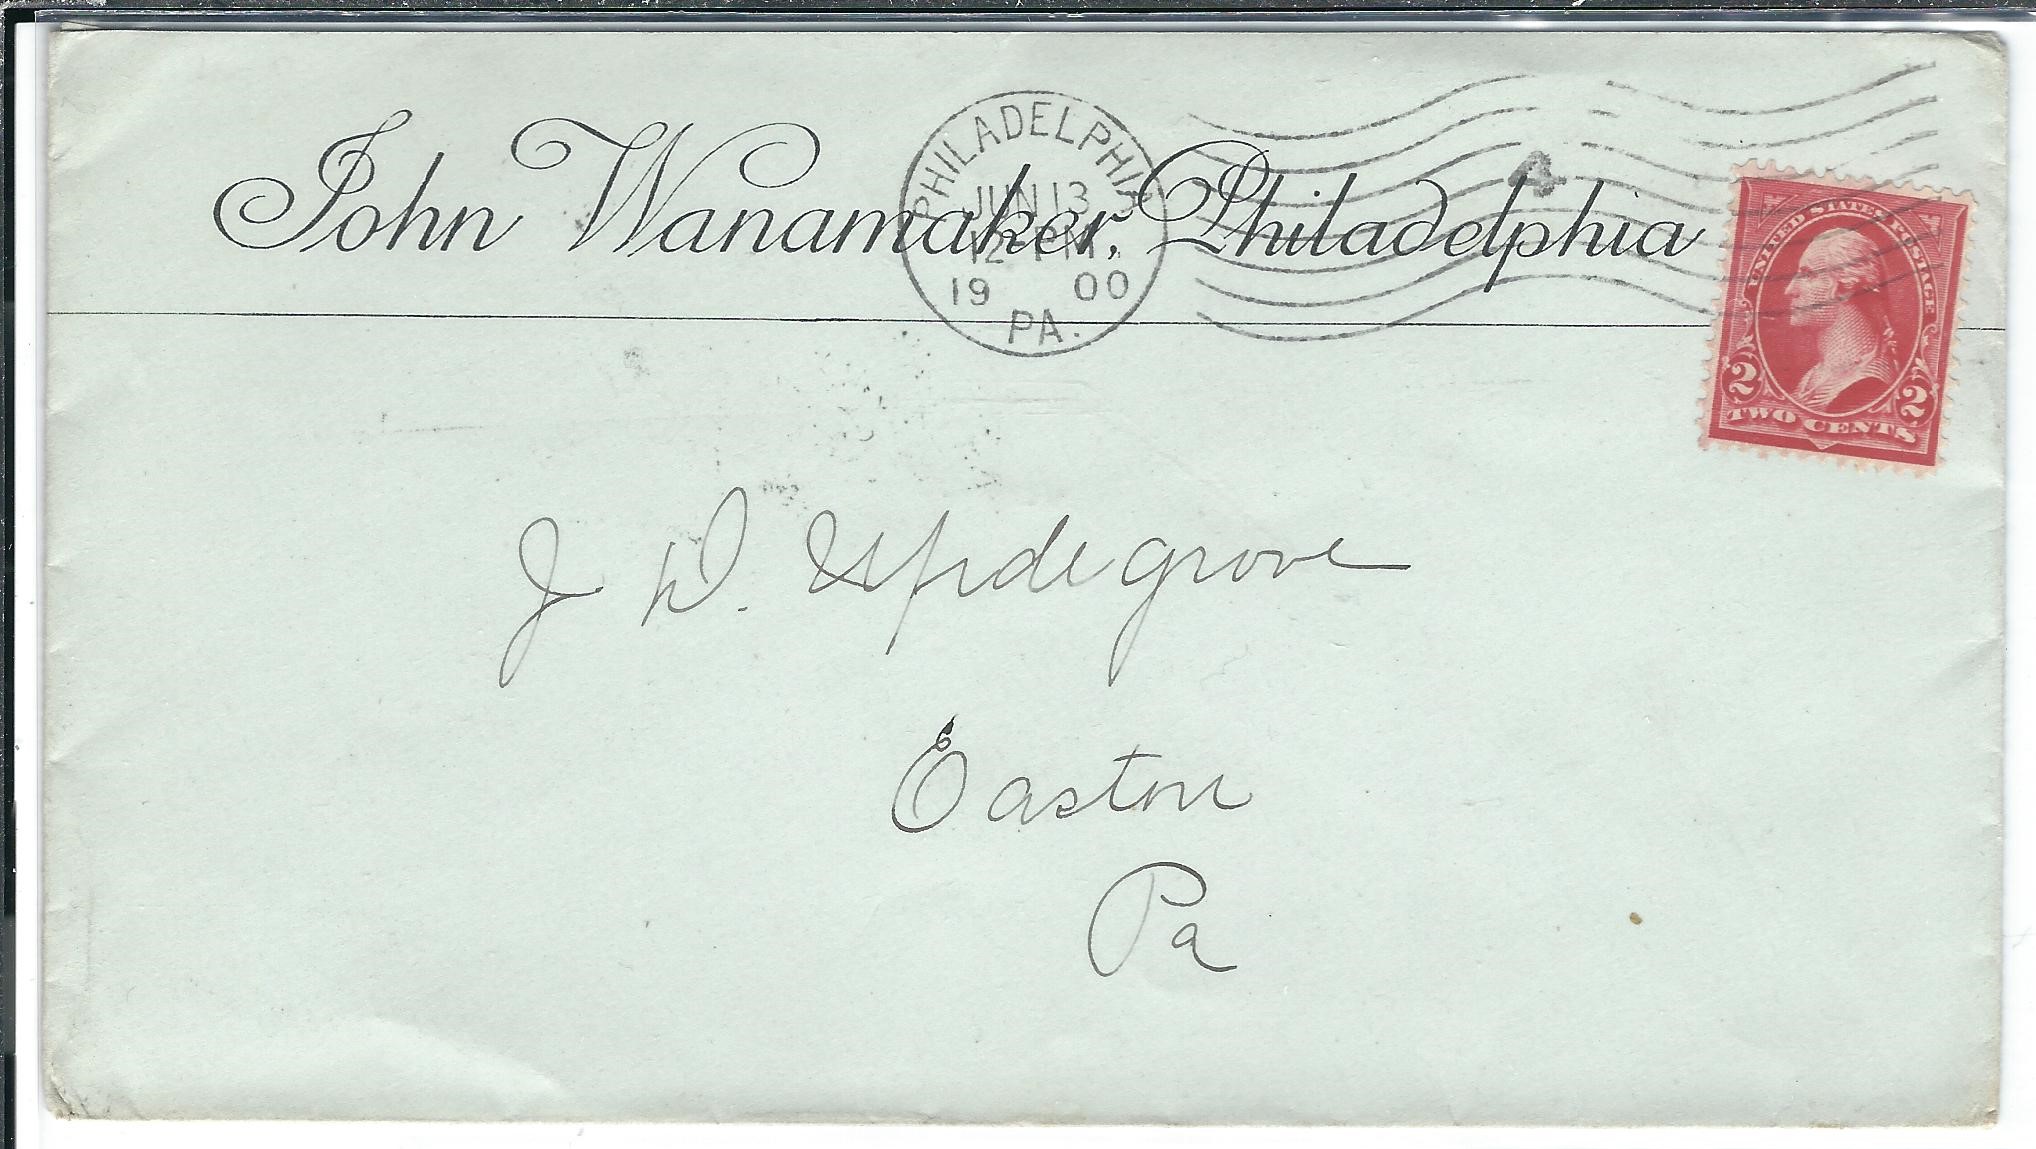 John Wanamaker, Philadelphia
PHILADELPHIA
JUN 13
12 PM
1900
PA.
4
UNITED STATES POSTAGE
2 2
TWO CENTS
J D. Updegrove
Easton
Pa